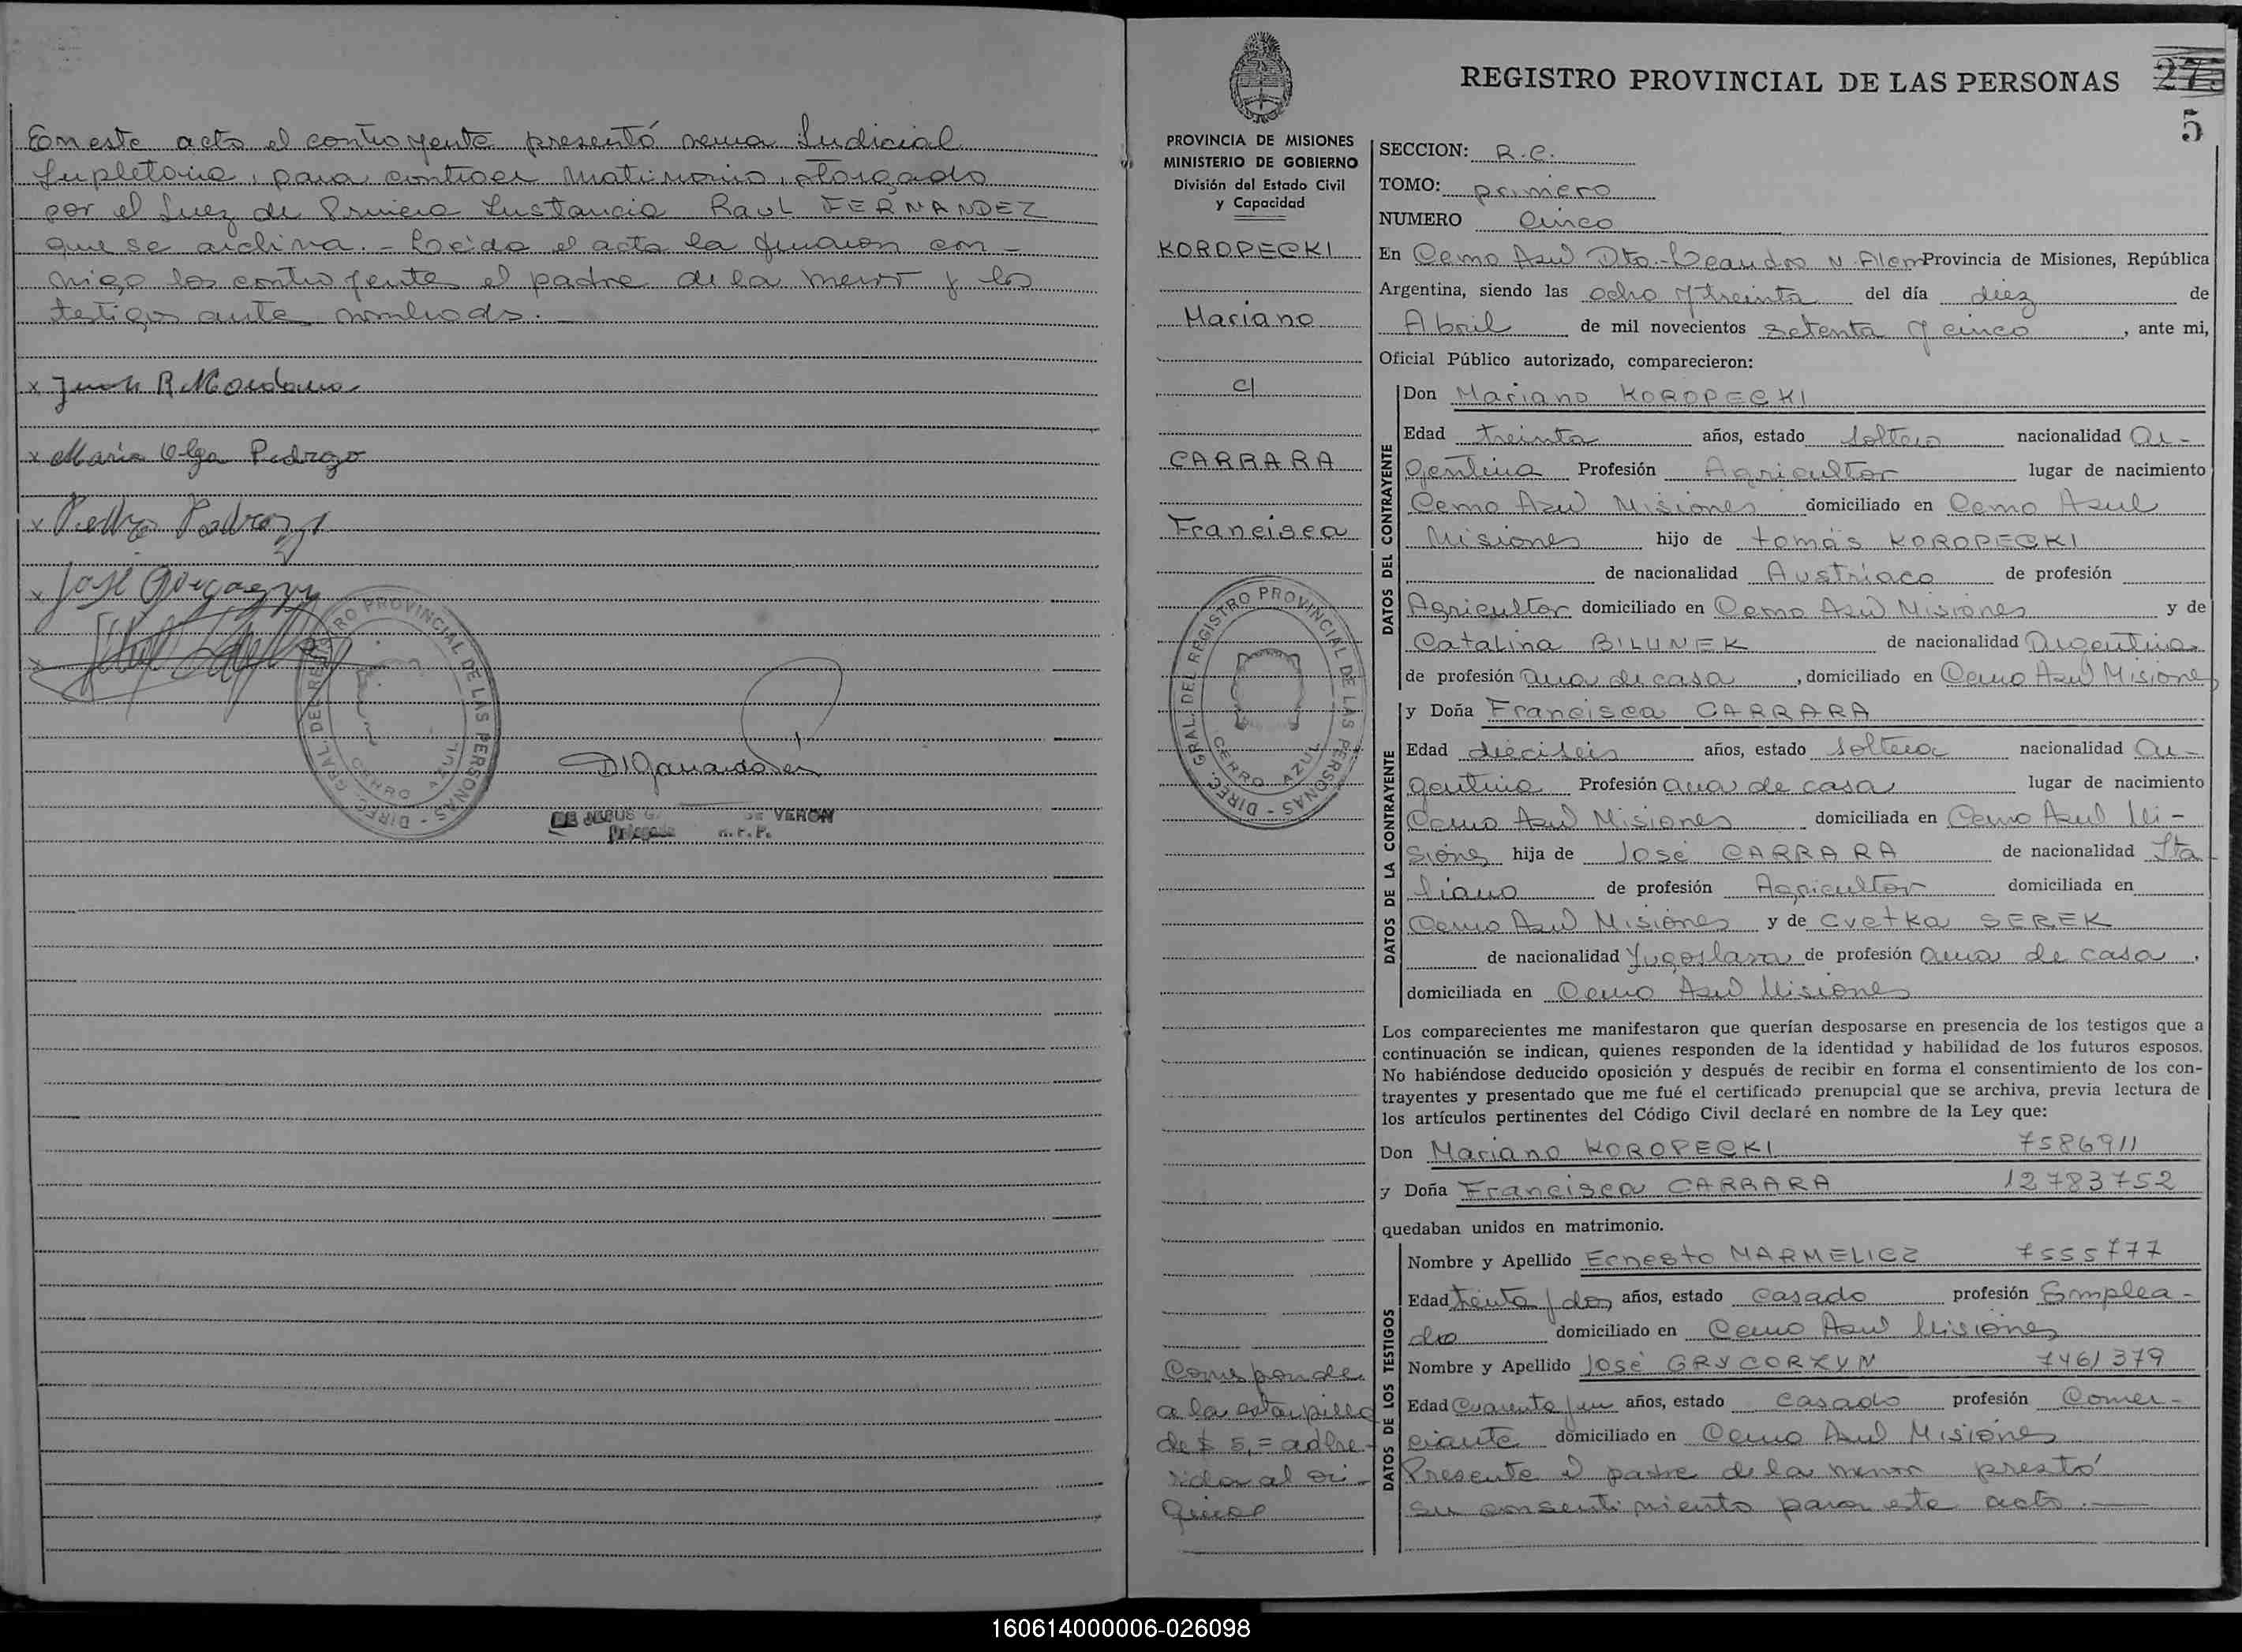 En este acto el contrayente presentó venia Judicial
Supletoria, para contraer Matrimonio, otorgado
por el Juez de Primera Instancia Raul FERNANDEZ
que se archiva.- Leída el acta la firmaron con-
migo los contrayentes el padre de la menor y los
testigos antes nombrados.-
x Juan R
x Maria Olga Pedrozo
x Pedro Pedrozo
x José
DIREC. GRAL. DEL REGISTRO PROVINCIAL DE LAS PERSONAS -
CERRO AZUL
DE JESUS G. DE VERON
Delegada R.P.P.
REGISTRO PROVINCIAL DE LAS PERSONAS 275
5
PROVINCIA DE MISIONES
MINISTERIO DE GOBIERNO
División del Estado Civil
y Capacidad
KOROPECKI
Mariano
c/
CARRARA
Francisca
DIREC. GRAL. DEL REGISTRO PROVINCIAL DE LAS PERSONAS -
CERRO AZUL
Corresponde
a la estampilla
de $ 5,= adhe-
rida al ori-
ginal
SECCION: R.C.
TOMO: primero
NUMERO Cinco
En Cerro Azul Dto.-Leandro N. Alem Provincia de Misiones, República
Argentina, siendo las ocho y treinta del día diez de
Abril de mil novecientos setenta y cinco, ante mi,
Oficial Público autorizado, comparecieron:
DATOS DEL CONTRAYENTE
Don Mariano KOROPECKI
Edad treinta años, estado soltero nacionalidad Ar-
gentina Profesión Agricultor lugar de nacimiento
Cerro Azul Misiones domiciliado en Cerro Azul
Misiones hijo de tomás KOROPECKI
de nacionalidad Austríaco de profesión
Agricultor domiciliado en Cerro Azul Misiones y de
Catalina BILUNEK de nacionalidad Argentina
de profesión ama de casa, domiciliado en Cerro Azul Misiones
DATOS DE LA CONTRAYENTE
y Doña Francisca CARRARA
Edad dieciseis años, estado soltera nacionalidad Ar-
gentina Profesión ama de casa lugar de nacimiento
Cerro Azul Misiones domiciliada en Cerro Azul Mi-
siones hija de José CARRARA de nacionalidad Ita
liano de profesión Agricultor domiciliada en
Cerro Azul Misiones y de Cvetka SEREK
de nacionalidad Yugoslava de profesión ama de casa,
domiciliada en Cerro Azul Misiones
Los comparecientes me manifestaron que querían desposarse en presencia de los testigos que a
continuación se indican, quienes responden de la identidad y habilidad de los futuros esposos.
No habiéndose deducido oposición y después de recibir en forma el consentimiento de los con-
trayentes y presentado que me fué el certificado prenupcial que se archiva, previa lectura de
los artículos pertinentes del Código Civil declaré en nombre de la Ley que:
Don Mariano KOROPECKI 7586911
y Doña Francisca CARRARA 12783752
quedaban unidos en matrimonio.
DATOS DE LOS TESTIGOS
Nombre y Apellido Ernesto MARMELICZ 7555777
Edad treinta y dos años, estado casado profesión Emplea-
do domiciliado en Cerro Azul Misiones
Nombre y Apellido José GRYCORZYN 7461379
Edad Cuarenta y un años, estado casado profesión Comer-
ciante domiciliado en Cerro Azul Misiones
Presente el padre de la menor prestó
su consentimiento para este acto.-
160614000006-026098